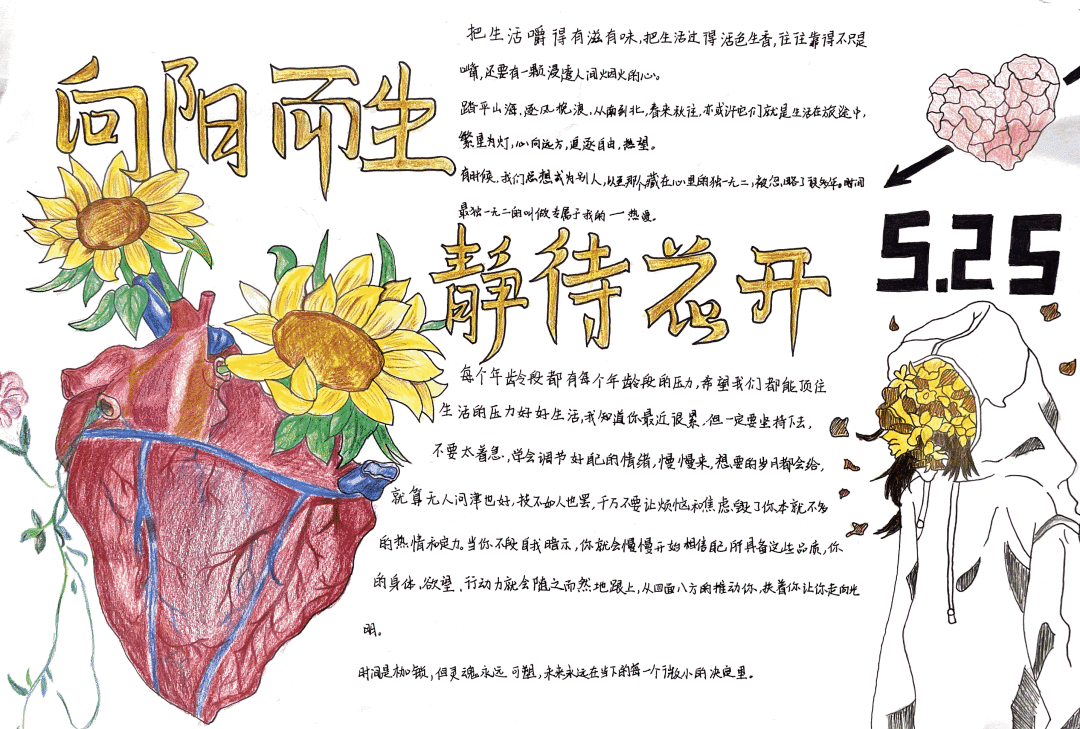 向阳而生
把生活嚼得有滋有味,把生活过得活色生香,往往靠得不只是
嘴,还要有一颗浸透人间烟火的心。
踏平山海,逐风挽浪,从南到北,春来秋往,亦或许它们就是生活在旅途中,
繁星为灯,心向远方,追逐自由,热望。
有时候,我们总想成为别人,以至那个藏在心里的独一无二,被忽略了很多年。时间
最独一无二的叫做专属于我的一热爱。
5.25
静待花开
每个年龄段都有每个年龄段的压力,希望我们都能顶住
生活的压力好好生活,我知道你最近很累,但一定要坚持下去,
不要太着急,学会调节好自己的情绪,慢慢来,想要的岁月都会给,
就算无人问津也好,技不如人也罢,千万不要让烦恼和焦虑毁了你本就不多
的热情和定力。当你不段自我暗示,你就会慢慢开始相信自己所具备这些品质,你
的身体、欲望、行动力就会随之而然地跟上,从四面八方的推动你,扶着你让你走向光
明。
时间是枷锁,但灵魂永远可塑,未来永远在当下的每一个微小的决定里。